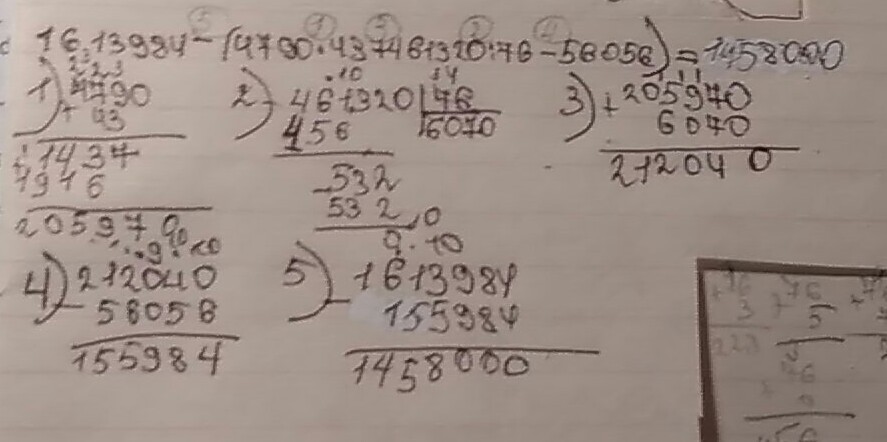 ⑤ ① ③ ② ④
1613984-(4790·43+461320:76-56056)=1458000
1) 4790
43
+1437
1916
205970
2) -461320|76
456 6070
-532
532
0
3) +205970
6070
212040
4) -212040
56056
155984
5) -1613984
155984
1458000
+76
3
228
+76
5